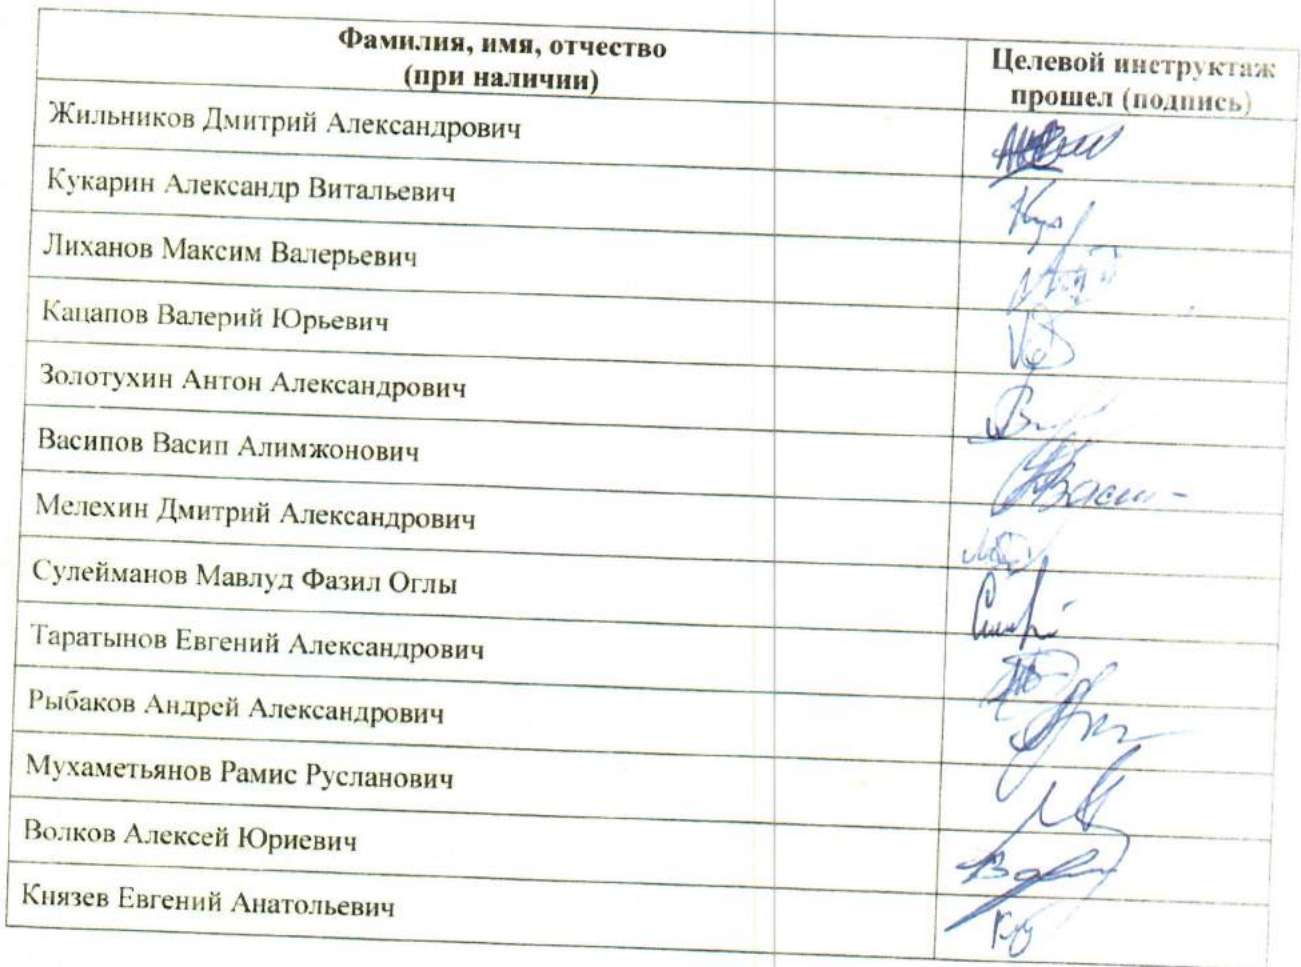 Фамилия, имя, отчество
(при наличии)
Целевой инструктаж
прошел (подпись)
Жильников Дмитрий Александрович
Кукарин Александр Витальевич
Лиханов Максим Валерьевич
Кацапов Валерий Юрьевич
Золотухин Антон Александрович
Васипов Васип Алимжонович
Мелехин Дмитрий Александрович
Сулейманов Мавлуд Фазил Оглы
Таратынов Евгений Александрович
Рыбаков Андрей Александрович
Мухаметьянов Рамис Русланович
Волков Алексей Юриевич
Князев Евгений Анатольевич